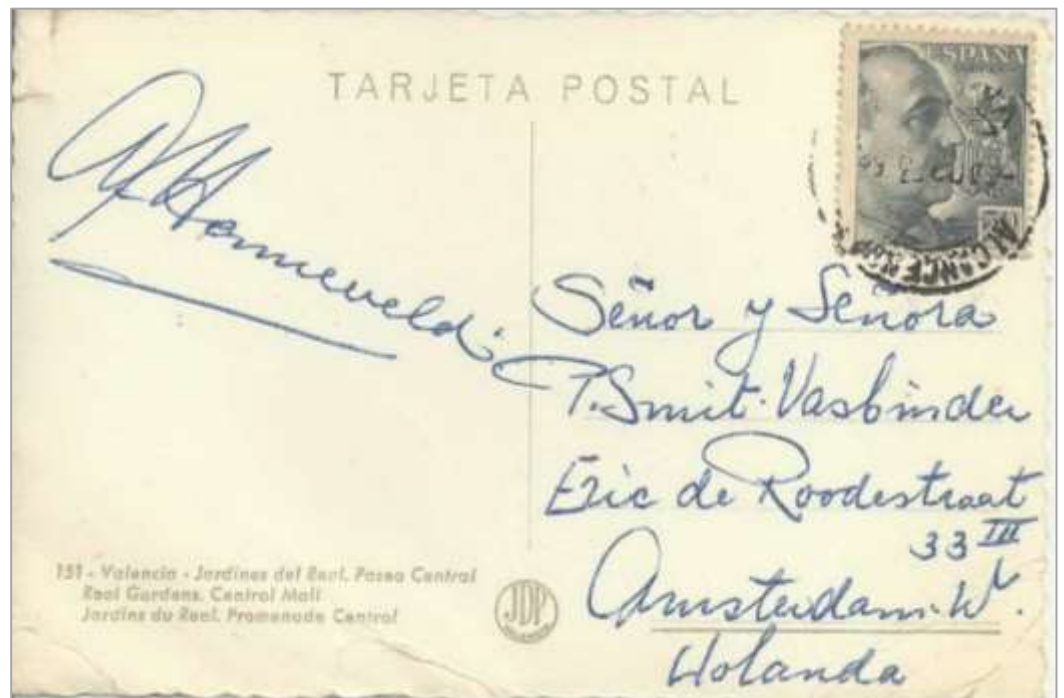 TARJETA POSTAL
ESPAÑA
Señor y Señora
P. Smit-Vasbinder
Eric de Roodestraat
33 III
Amsterdam-W.
Holanda
151 - Valencia - Jardines del Real. Paseo Central
Real Gardens. Central Mall
Jardins du Real. Promenade Central
JDP